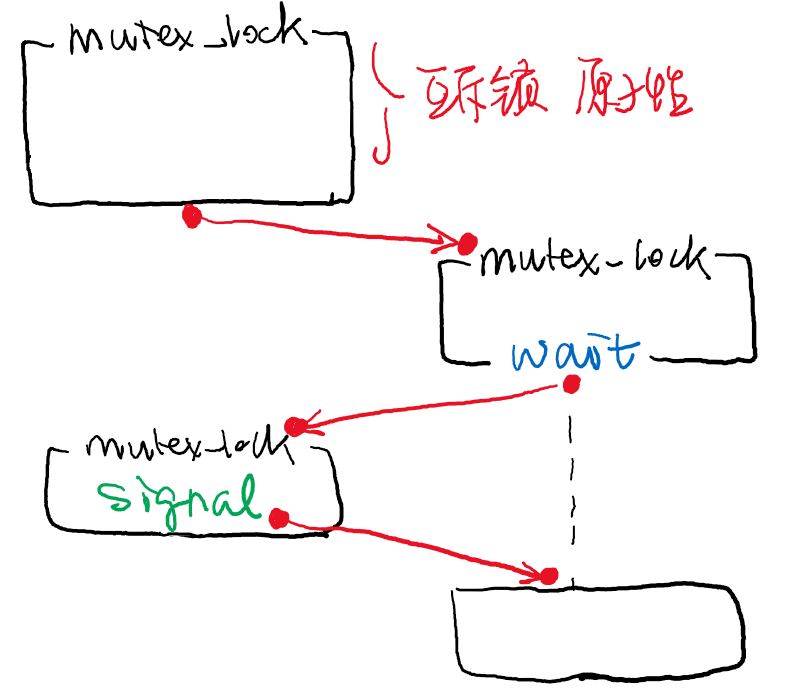 mutex_lock
互斥锁 原子性
mutex-lock
wait
mutex-lock
signal